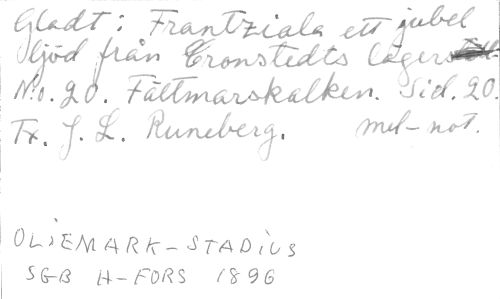 Gladt: Frantziala ett jubel
ljöd från Cronstedts läger
No. 20. Fältmarskalken. Sid. 20.
Tx. J. L. Runeberg. mel-not.
OLIEMARK-STADIUS
SGB H-FORS 1896